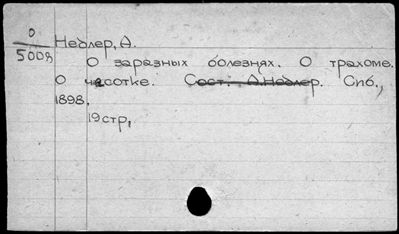 0
5008
Недлер, А.
О заразных болезнях. О трахоме.
О чесотке. Сост. А.Недлер. Спб.,
1898.
19стр,